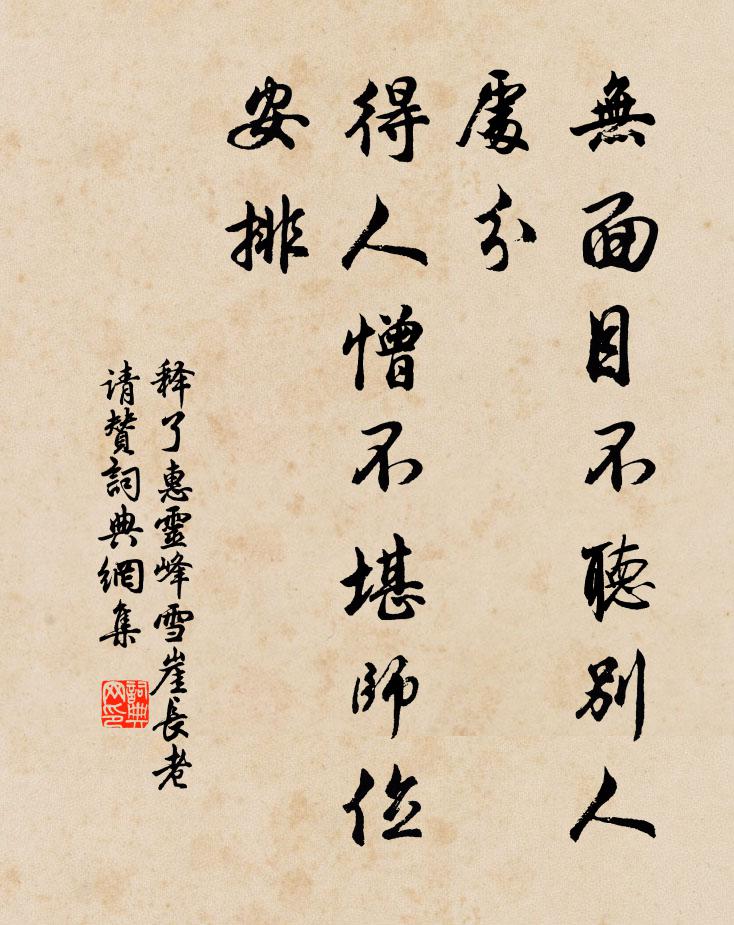 無面目不聽別人
處分
得人憎不堪師位
安排
释了惠靈峰雪崖長老
请贊詞典網集
詞典
网印